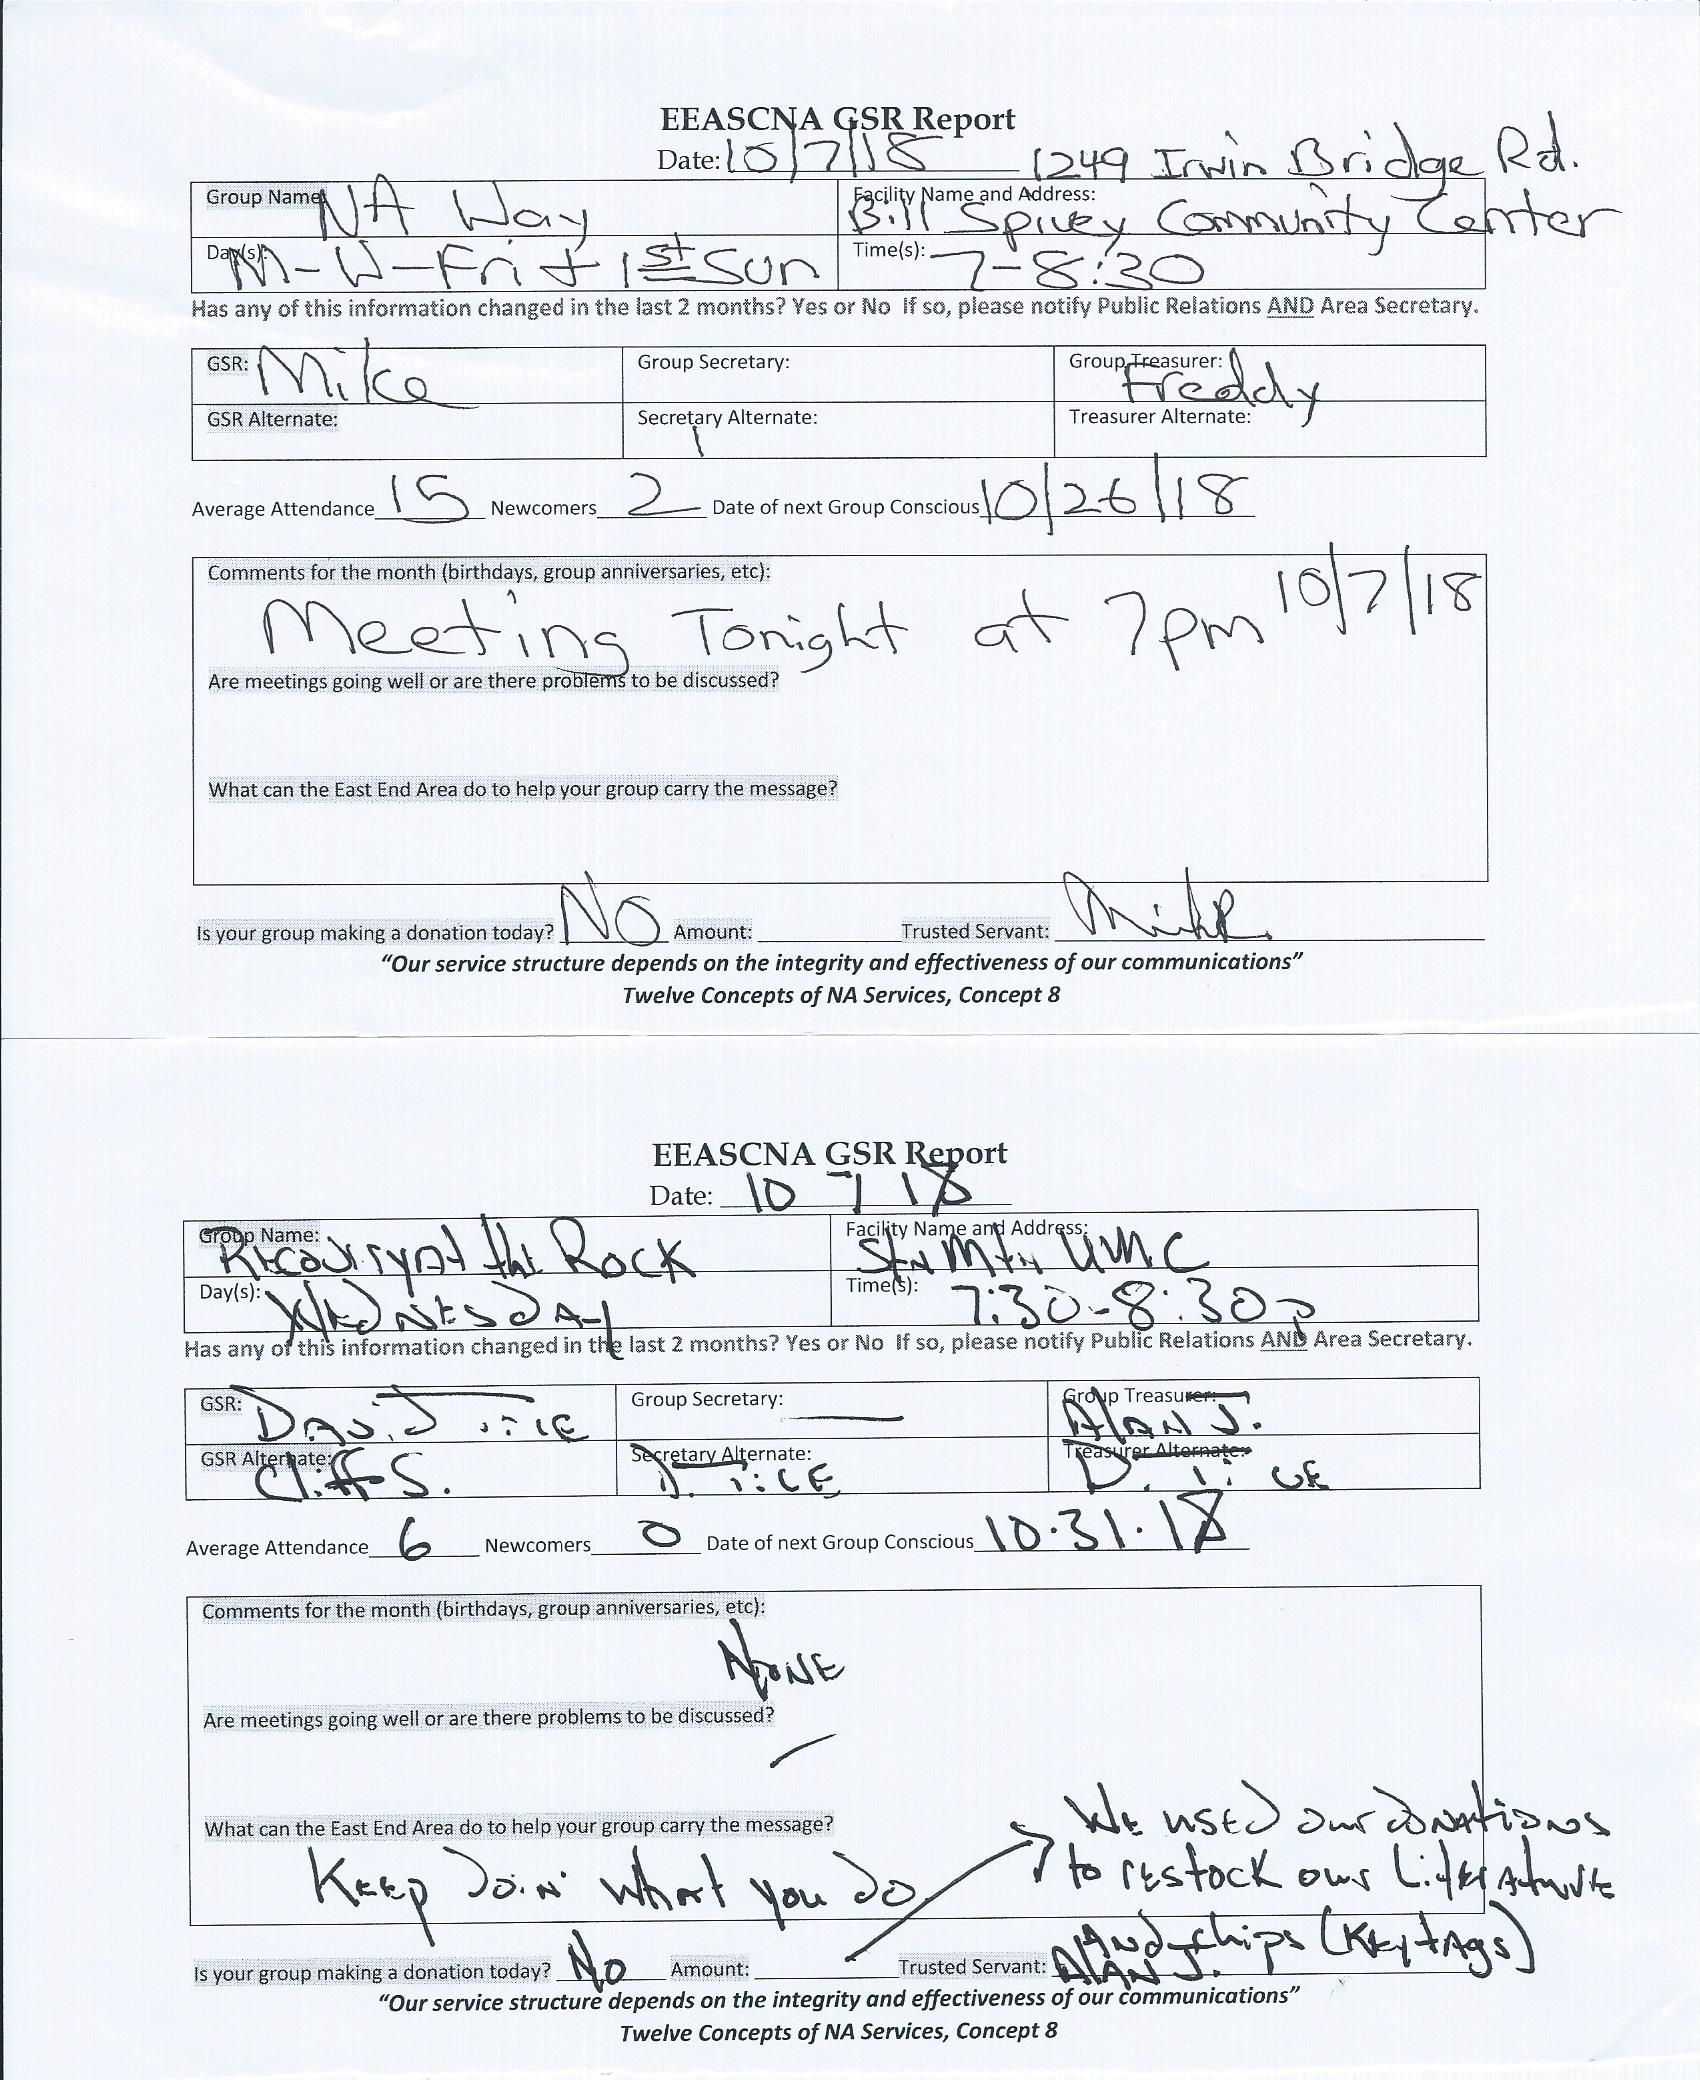 EEASCNA GSR Report
Date: 10/7/18 1249 Irwin Bridge Rd.
Group Name: NA Way Facility Name and Address: Bill Spivey Community Center
Day(s): M-W-Fri + 1st Sun Time(s): 7-8:30
Has any of this information changed in the last 2 months? Yes or No If so, please notify Public Relations AND Area Secretary.
GSR: Mike Group Secretary: Group Treasurer: Freddy
GSR Alternate: Secretary Alternate: Treasurer Alternate:
Average Attendance 15 Newcomers 2 Date of next Group Conscious 10/26/18
Comments for the month (birthdays, group anniversaries, etc):
Meeting Tonight at 7pm 10/7/18
Are meetings going well or are there problems to be discussed?
What can the East End Area do to help your group carry the message?
Is your group making a donation today? NO Amount: Trusted Servant: Mike
"Our service structure depends on the integrity and effectiveness of our communications"
Twelve Concepts of NA Services, Concept 8
EEASCNA GSR Report
Date: 10 7 18
Group Name: Recovery At the Rock Facility Name and Address: Stn Mtn UMC
Day(s): Wednesday Time(s): 7:30-8:30p
Has any of this information changed in the last 2 months? Yes or No If so, please notify Public Relations AND Area Secretary.
GSR: David Tice Group Secretary: — Group Treasurer: Alan J.
GSR Alternate: Cliff S. Secretary Alternate: D. Tice Treasurer Alternate: D. Tice
Average Attendance 6 Newcomers 0 Date of next Group Conscious 10.31.18
Comments for the month (birthdays, group anniversaries, etc):
None
Are meetings going well or are there problems to be discussed?
What can the East End Area do to help your group carry the message?
Keep Doin' what you do
We used our donations
to restock our Literature
And chips (Key tags)
Is your group making a donation today? No Amount: Trusted Servant: Alan J.
"Our service structure depends on the integrity and effectiveness of our communications"
Twelve Concepts of NA Services, Concept 8